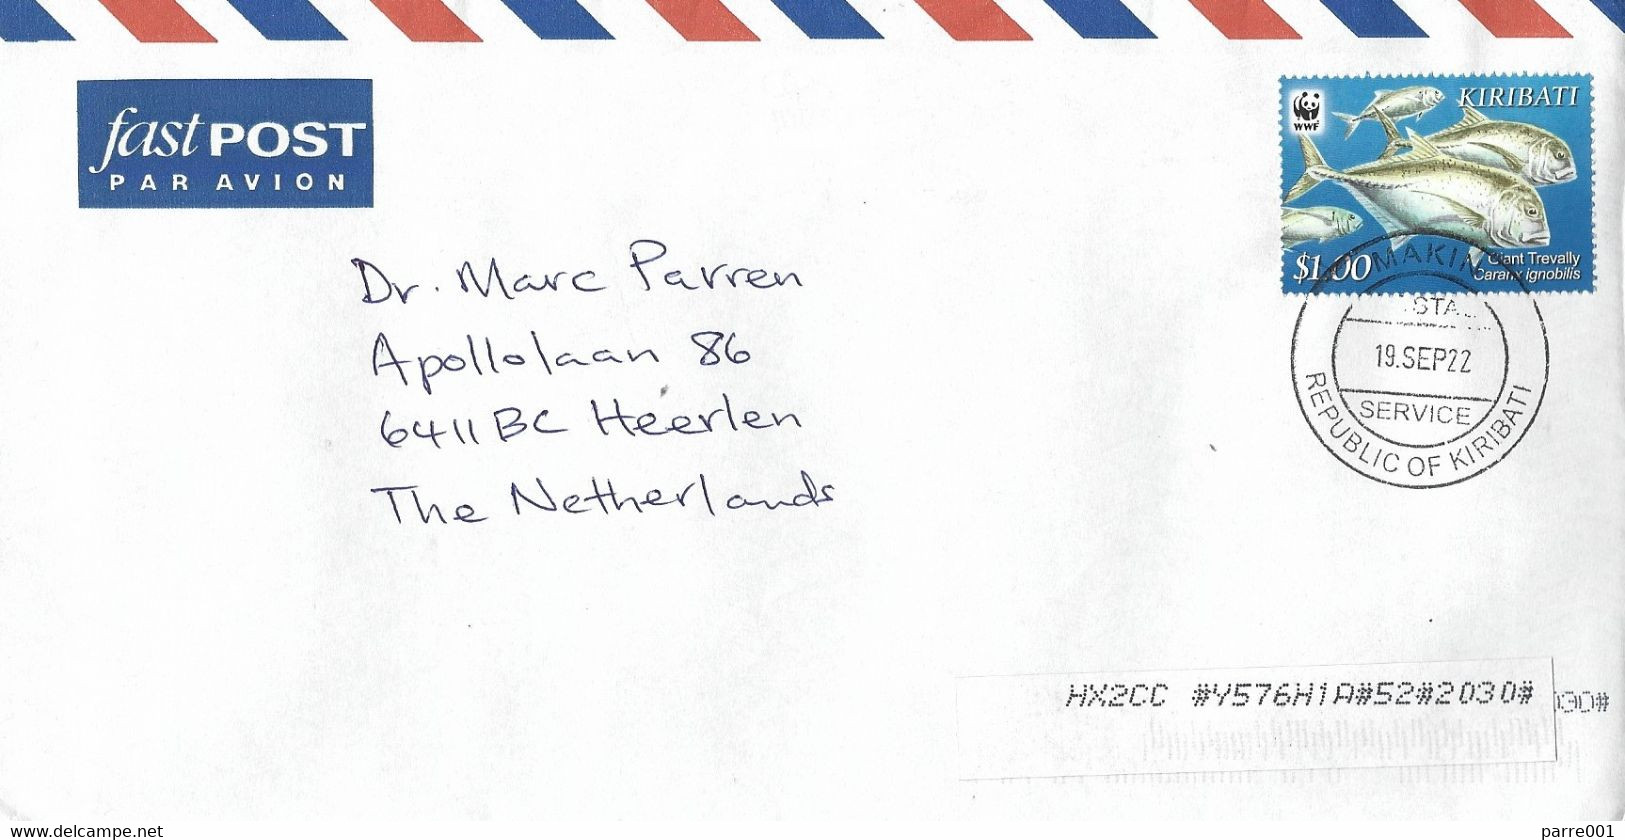 fast POST
PAR AVION
KIRIBATI
WWF
$1.00
Giant Trevally
Caranx ignobilis
MAKIN
19.SEP22
SERVICE
REPUBLIC OF KIRIBATI
Dr. Marc Parren
Apollolaan 86
6411 BC Heerlen
The Netherlands
HX2CC #Y576H1A#52#2030#
030#
www.delcampe.net
parre001